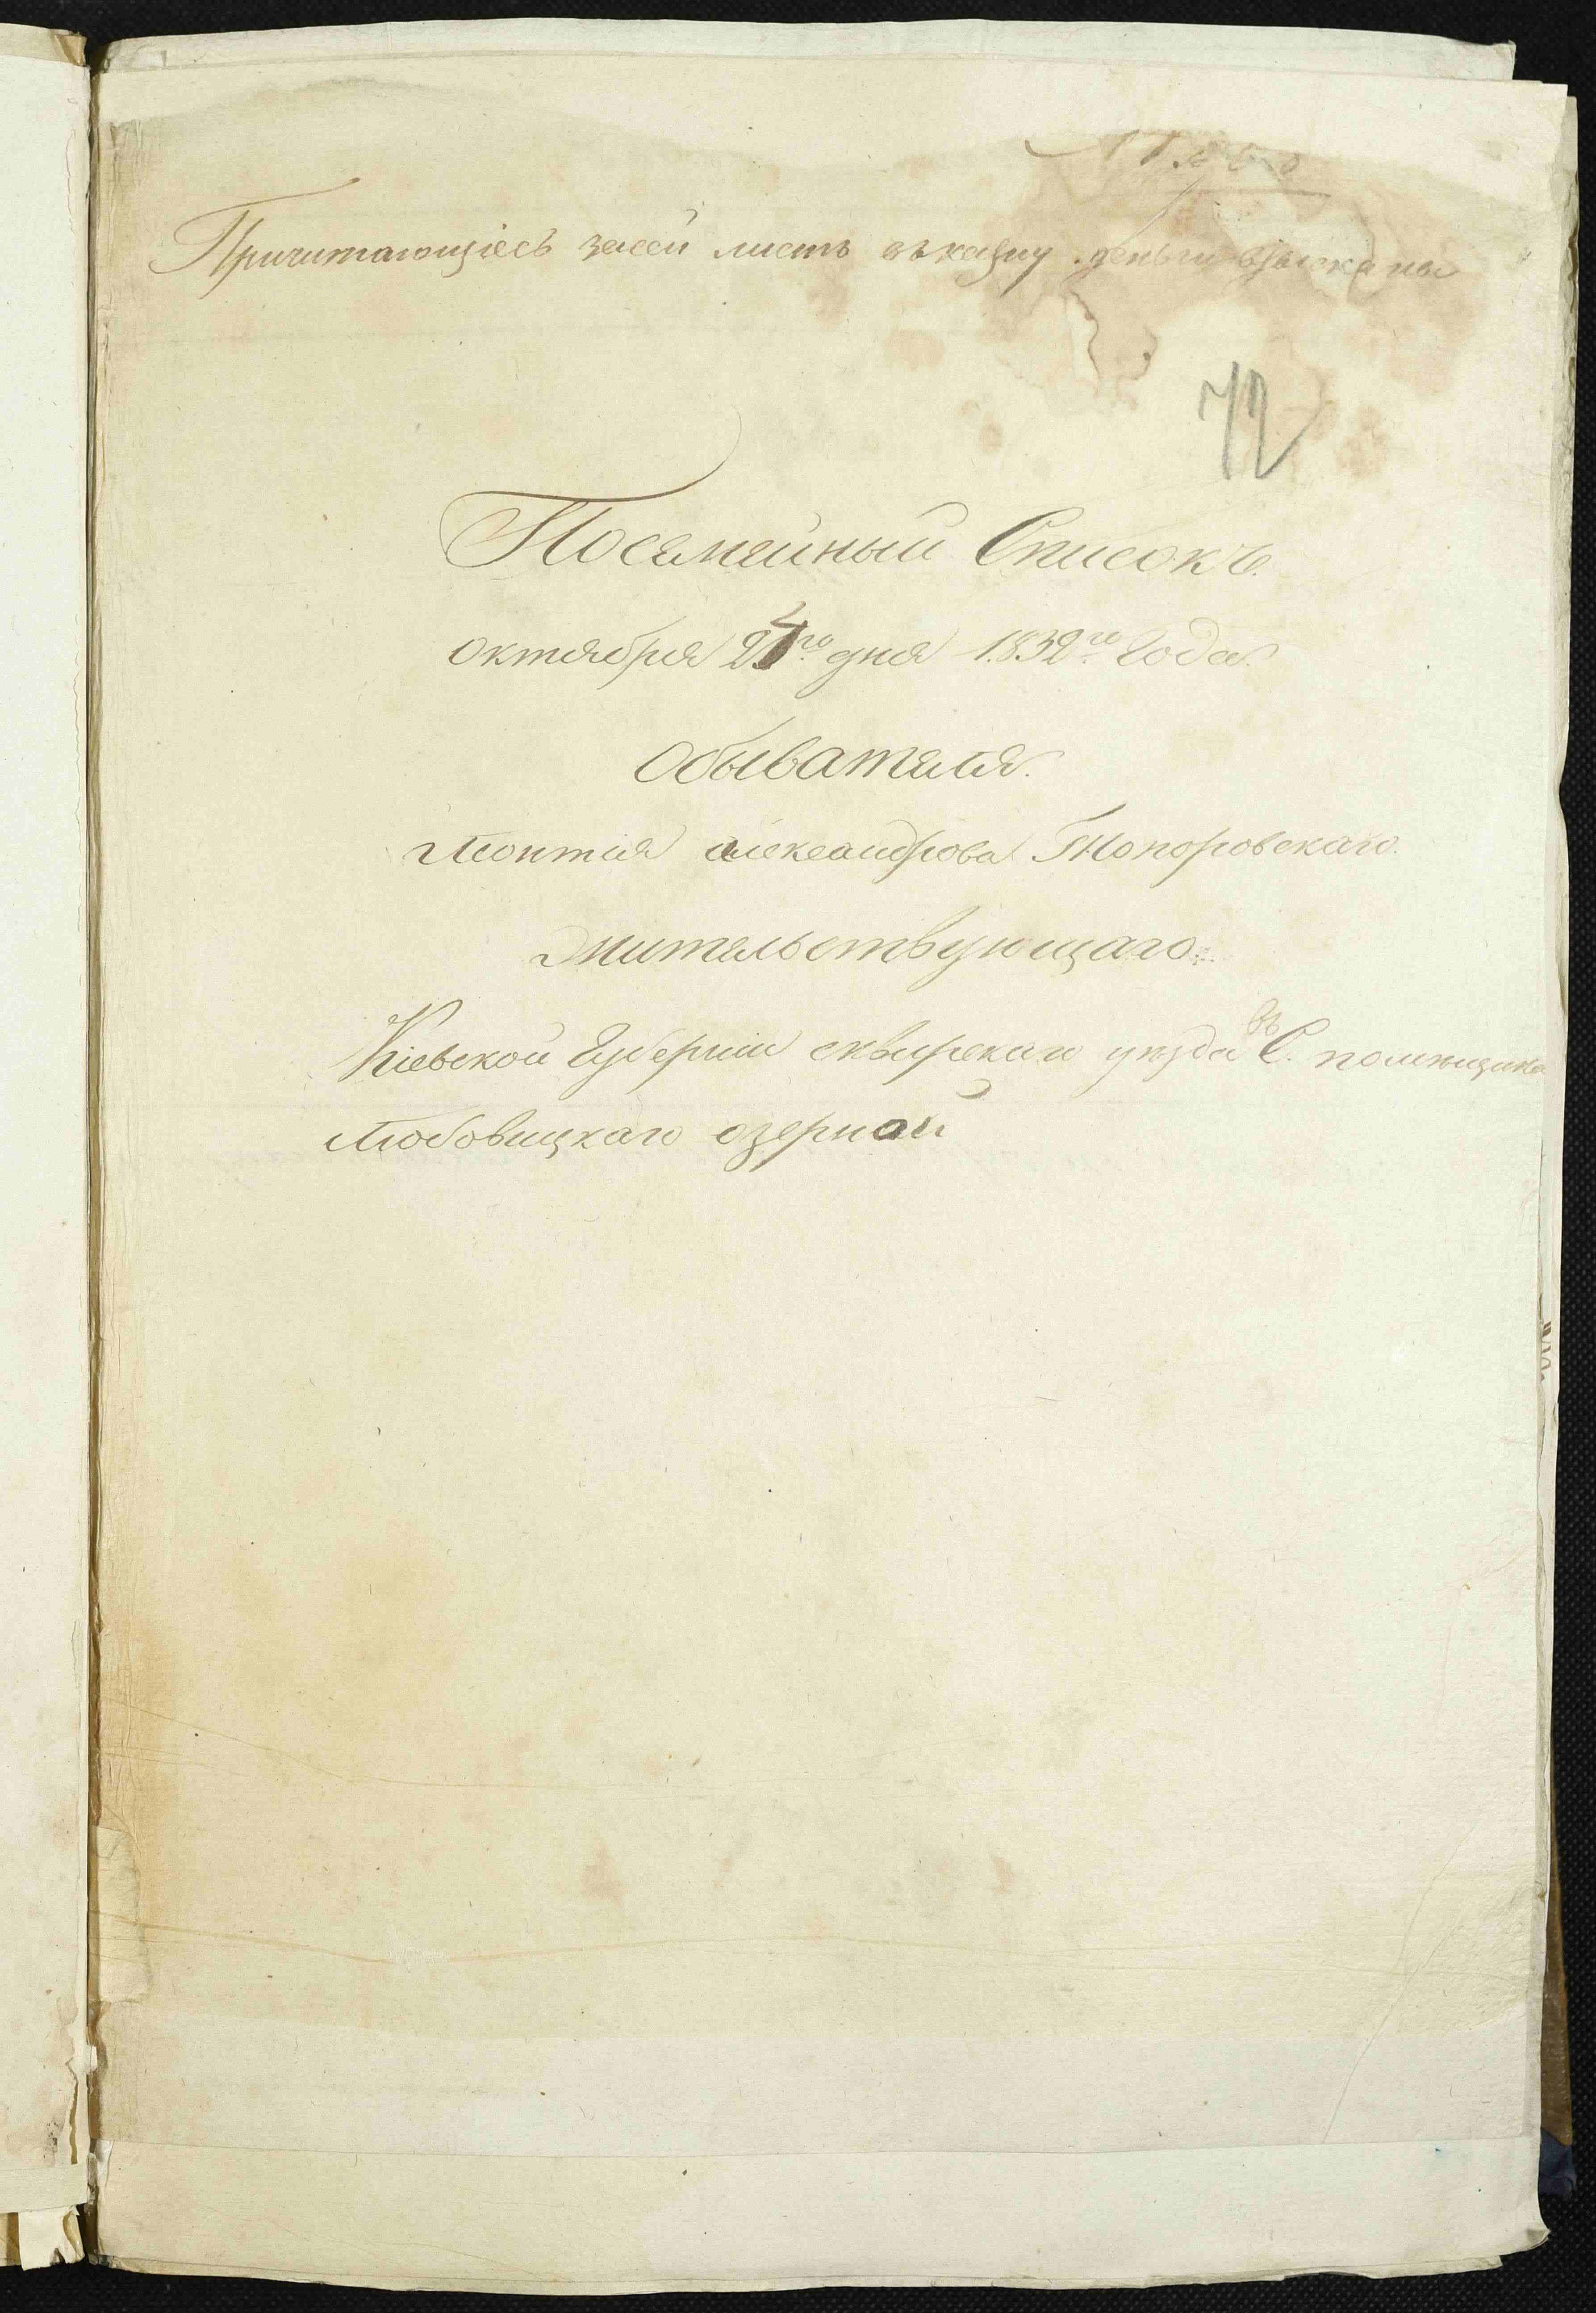 Причитающіесъ засей листъ въказну деньги взысканы
72
Посемейный Списокъ
октября 24го дня 1832го Года
Обывателя.
Леонтія александрова Топоровскаго
Жительствующаго.
Кіевской Губерніи сквирскаго уезда въ С. помещика
Любовицкаго озерной